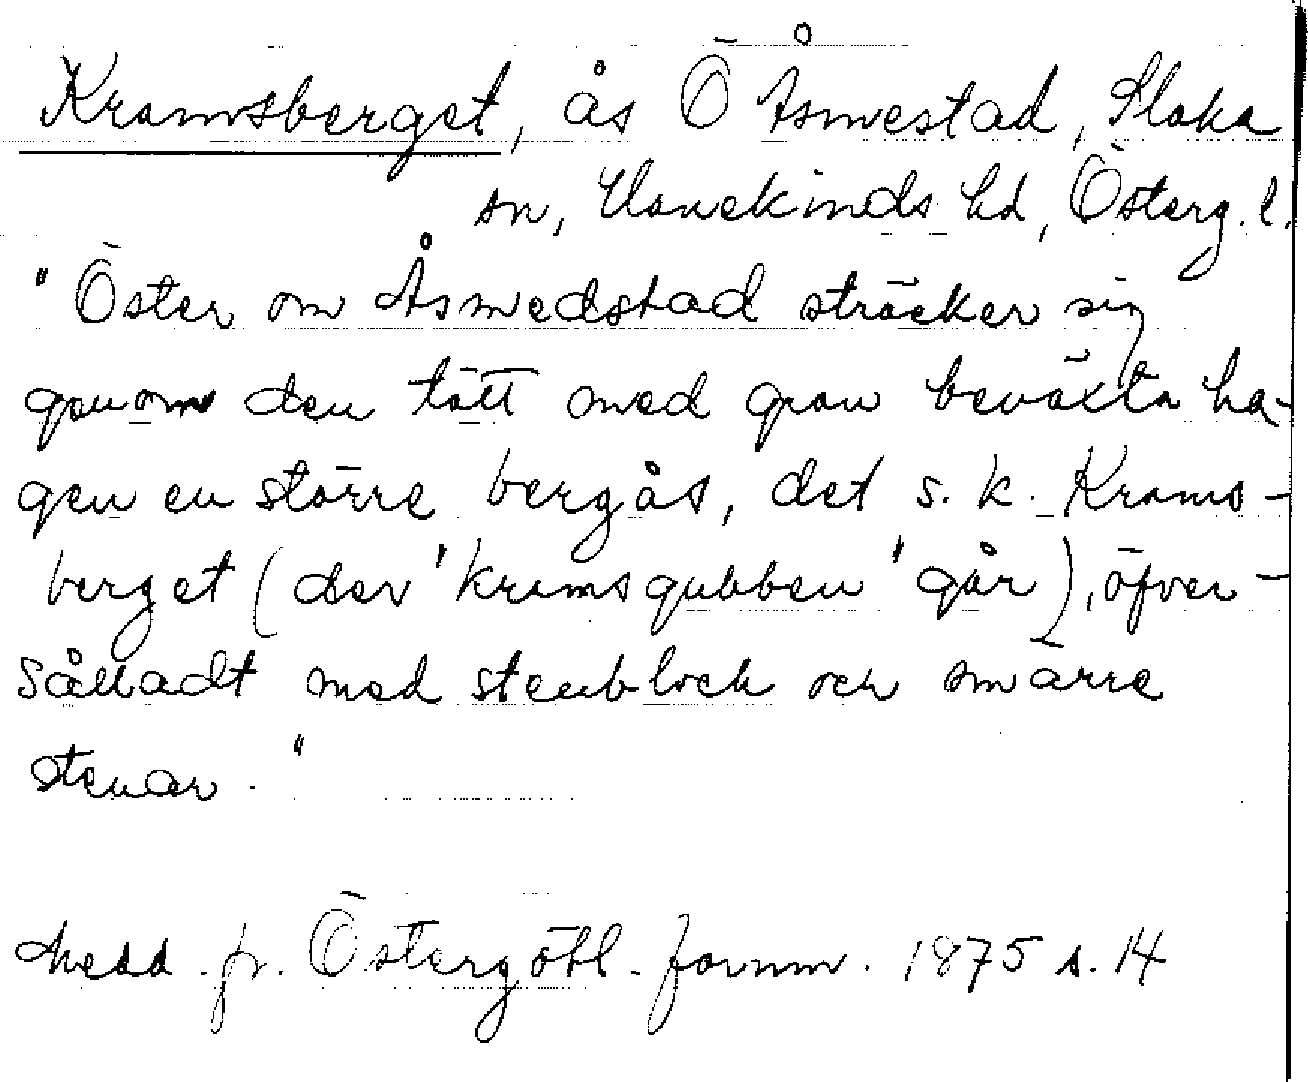 Kramsberget, ås Ö Åsmestad, Slaka
sn, Hanekinds hd, Österg. l.
"Öster om Åsmedstad sträcker sig
genom den tätt med gran beväxta ha-
gen en större bergås, det s. k. Krams-
berget (der 'kramsgubben' går), öfver-
sålladt med stenblock och smärre
stenar."
Medd. fr. Östergötl. fornm. 1875 s. 14